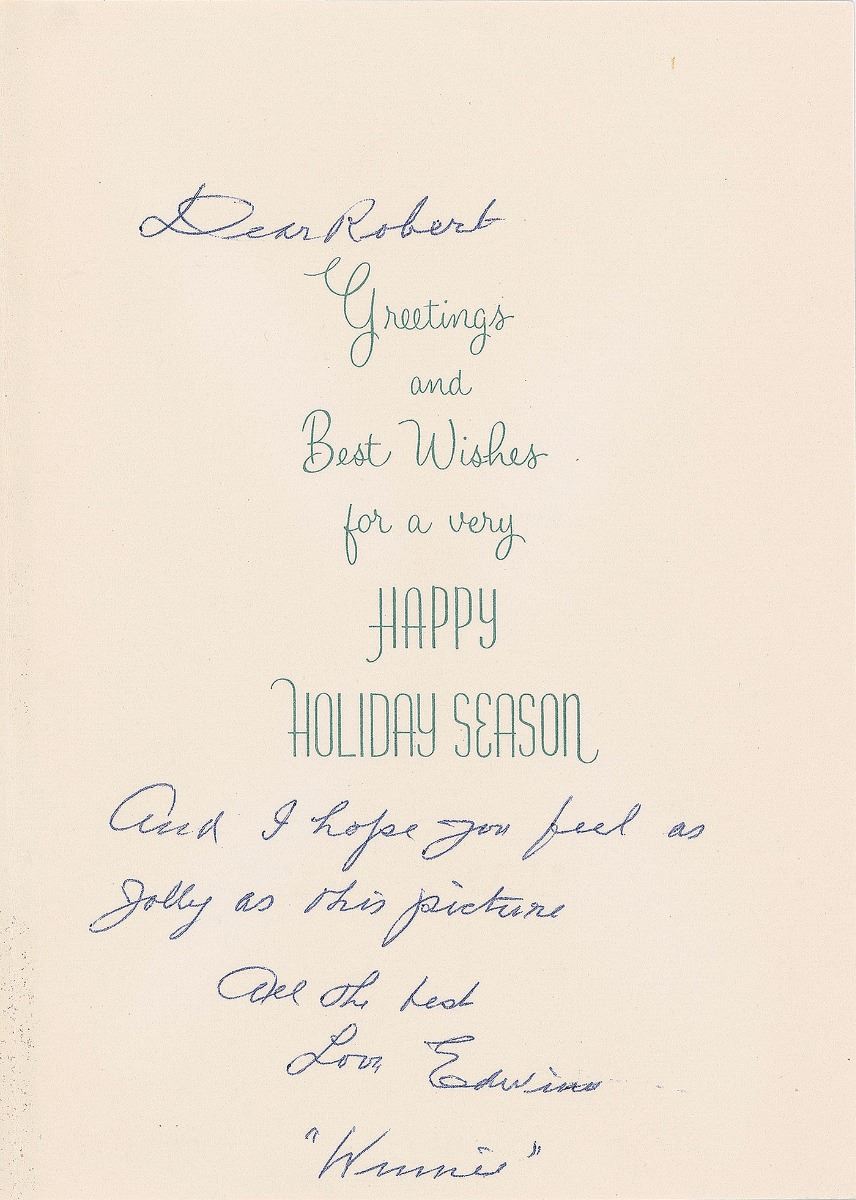 Dear Robert
Greetings
and
Best Wishes
for a very
HAPPY
HOLIDAY SEASON
And I hope you feel as
Jolly as this picture
All the best
Love Edwina
"Winnie"